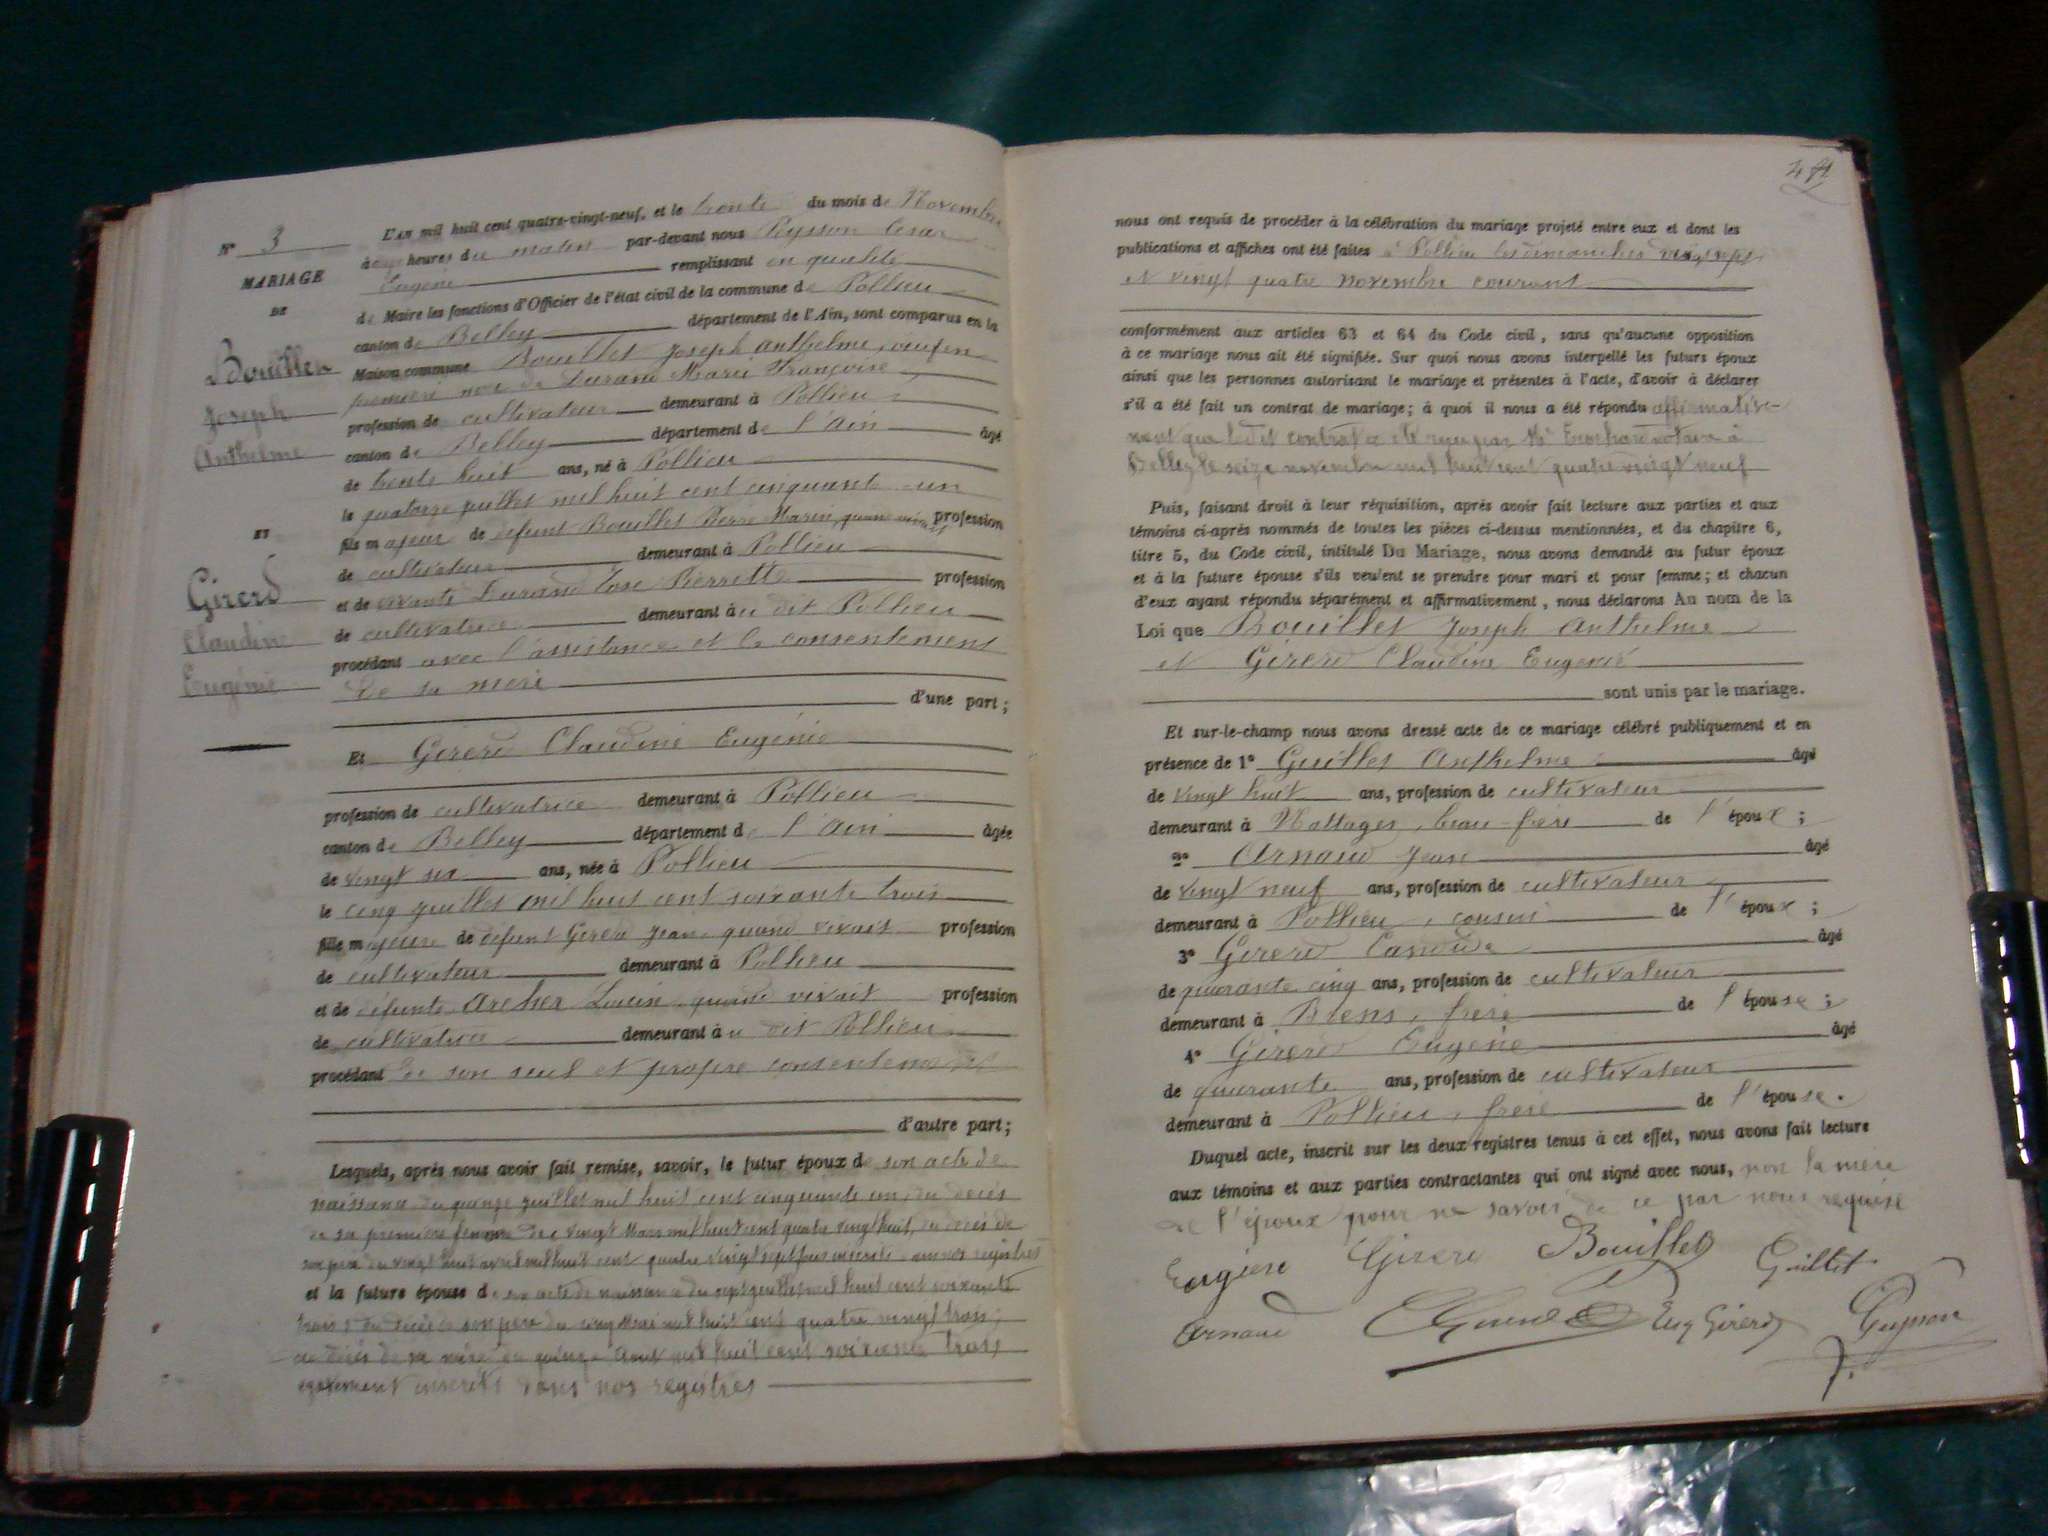 N° 3
MARIAGE
DE
Bouillet
Joseph
Anthelme
ET
Girerd
Claudine
Eugénie
L'AN mil huit cent quatre-vingt-neuf, et le trente du mois de Novembre
à heures du matin par-devant nous Peysson César
Eugène remplissant en qualité
de Maire les fonctions d'Officier de l'état civil de la commune de Pollieu
canton de Belley département de l'Ain, sont comparus en la
Maison commune Bouillet Joseph Anthelme, veuf en
premières noces de Durand Marie Françoise
profession de cultivateur demeurant à Pollieu
canton de Belley département de l'Ain âgé
de trente huit ans, né à Pollieu
le quatorze juillet mil huit cent cinquante-un
fils majeur de défunt Bouillet Pierre Marin, quand vivait profession
de cultivateur demeurant à Pollieu
et de vivante Durand Pierrette profession
de cultivatrice demeurant à u dit Pollieu
procédant avec l'assistance et le consentement
de sa mère
d'une part;
Et Girerd Claudine Eugénie
profession de cultivatrice demeurant à Pollieu
canton de Belley département de l'Ain âgée
de vingt six ans, née à Pollieu
le cinq juillet mil huit cent soixante trois
fille majeure de défunt Girerd Jean quand vivait profession
de cultivateur demeurant à Pollieu
et de défunte Archer quand vivait profession
de cultivatrice demeurant à u dit Pollieu
procédant de son seul et propre consentement
d'autre part;
Lesquels, après nous avoir fait remise, savoir, le futur époux de son acte de
naissance du quinze juillet mil huit cent cinquante un, du décès
de sa première femme du vingt Mars mil huit cent quatre vingt huit, du décès de
son père du vingt huit avril mil huit cent quatre vingt sept inscrits nos registres
et la future épouse de son acte de naissance du sept juillet mil huit cent soixante
trois, du décès de son père du cinq Mai mil huit cent quatre vingt trois,
du décès de sa mère du quinze Aout mil huit cent soixante trois,
également inscrits dans nos registres
nous ont requis de procéder à la célébration du mariage projeté entre eux et dont les
publications et affiches ont été faites à Pollieu les dimanches
et vingt quatre novembre courant
conformément aux articles 63 et 64 du Code civil, sans qu'aucune opposition
à ce mariage nous ait été signifiée. Sur quoi nous avons interpellé les futurs époux
ainsi que les personnes autorisant le mariage et présentes à l'acte, d'avoir à déclarer
s'il a été fait un contrat de mariage; à quoi il nous a été répondu affirmative-
ment que le dit contrat a été reçu par Me notaire à
Belley le seize novembre mil huit cent quatre vingt neuf
Puis, faisant droit à leur réquisition, après avoir fait lecture aux parties et aux
témoins ci-après nommés de toutes les pièces ci-dessus mentionnées, et du chapitre 6,
titre 5, du Code civil, intitulé Du Mariage, nous avons demandé au futur époux
et à la future épouse s'ils veulent se prendre pour mari et pour femme; et chacun
d'eux ayant répondu séparément et affirmativement, nous déclarons Au nom de la
Loi que Bouillet Joseph Anthelme
et Girerd Claudine Eugénie
sont unis par le mariage.
Et sur-le-champ nous avons dressé acte de ce mariage célébré publiquement et en
présence de 1° Guillet Anthelme âgé
de vingt huit ans, profession de cultivateur
demeurant à Nattages, beau-frère de l'époux;
2° Arnaud Jean âgé
de vingt neuf ans, profession de cultivateur
demeurant à Pollieu, cousin de l'époux;
3° Girerd Candide âgé
de quarante cinq ans, profession de cultivateur
demeurant à Brens, frère de l'épouse;
4° Girerd Eugène âgé
de quarante ans, profession de cultivateur
demeurant à Pollieu, frère de l'épouse.
Duquel acte, inscrit sur les deux registres tenus à cet effet, nous avons fait lecture
aux témoins et aux parties contractantes qui ont signé avec nous, non la mère
de l'époux pour ne savoir de ce par nous requise
Girerd Bouillet Guillet
Arnaud Eug Girerd Peysson